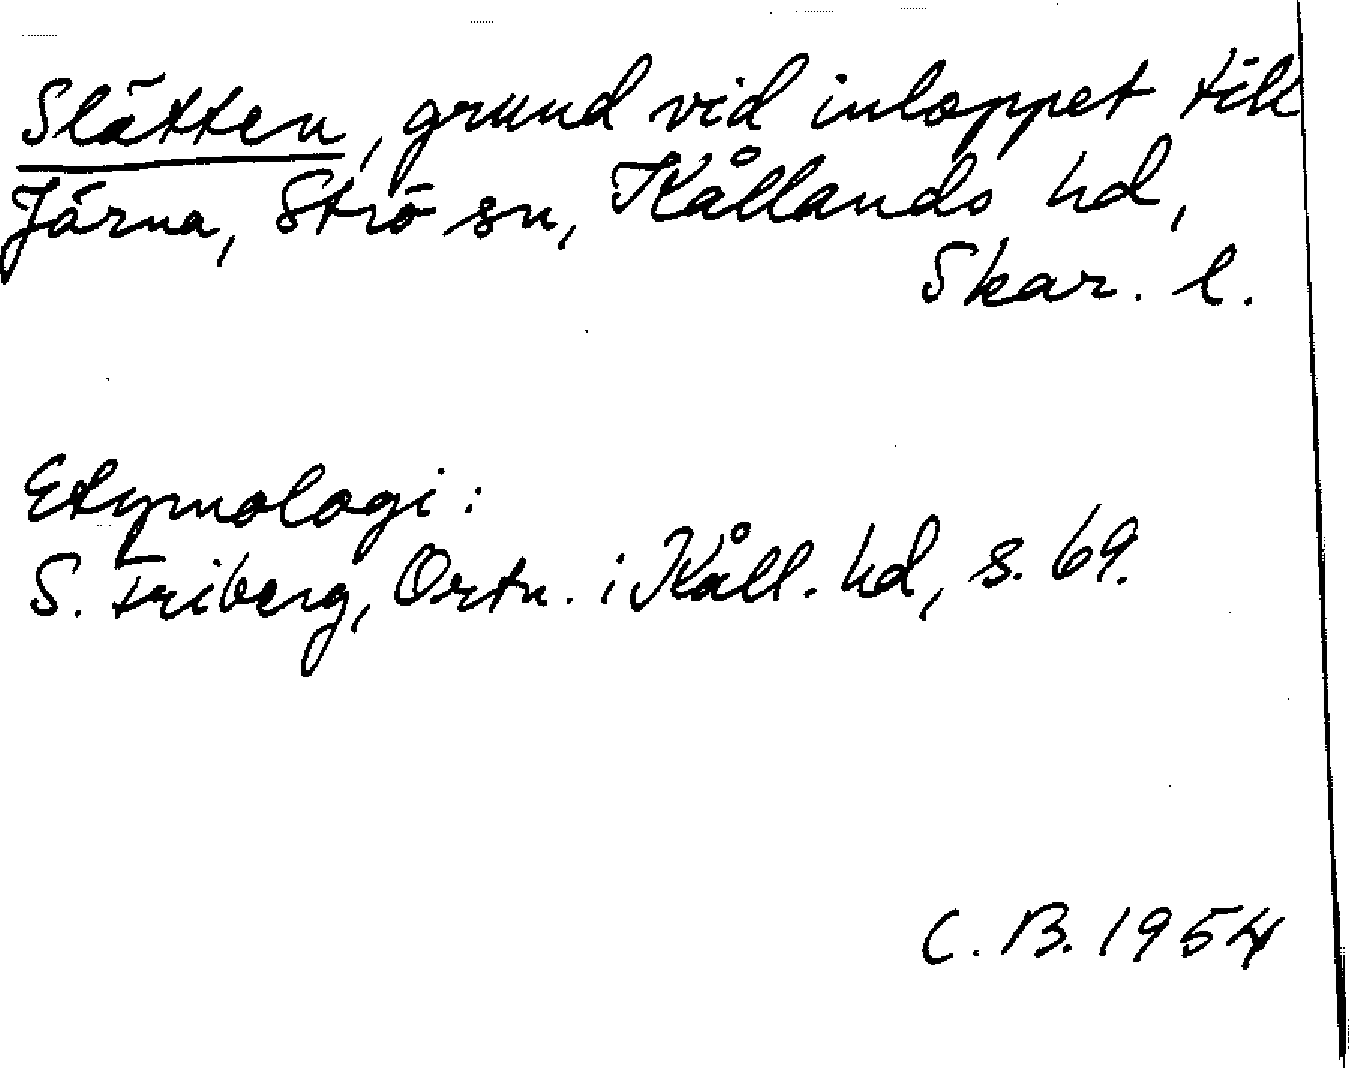 Slätten, grund vid inloppet till
Järna, Strö sn, Kållands hd,
Skar. l.
Etymologi:
S. Friberg, Ortn. i Kåll. hd, s. 69.
C. B. 1954